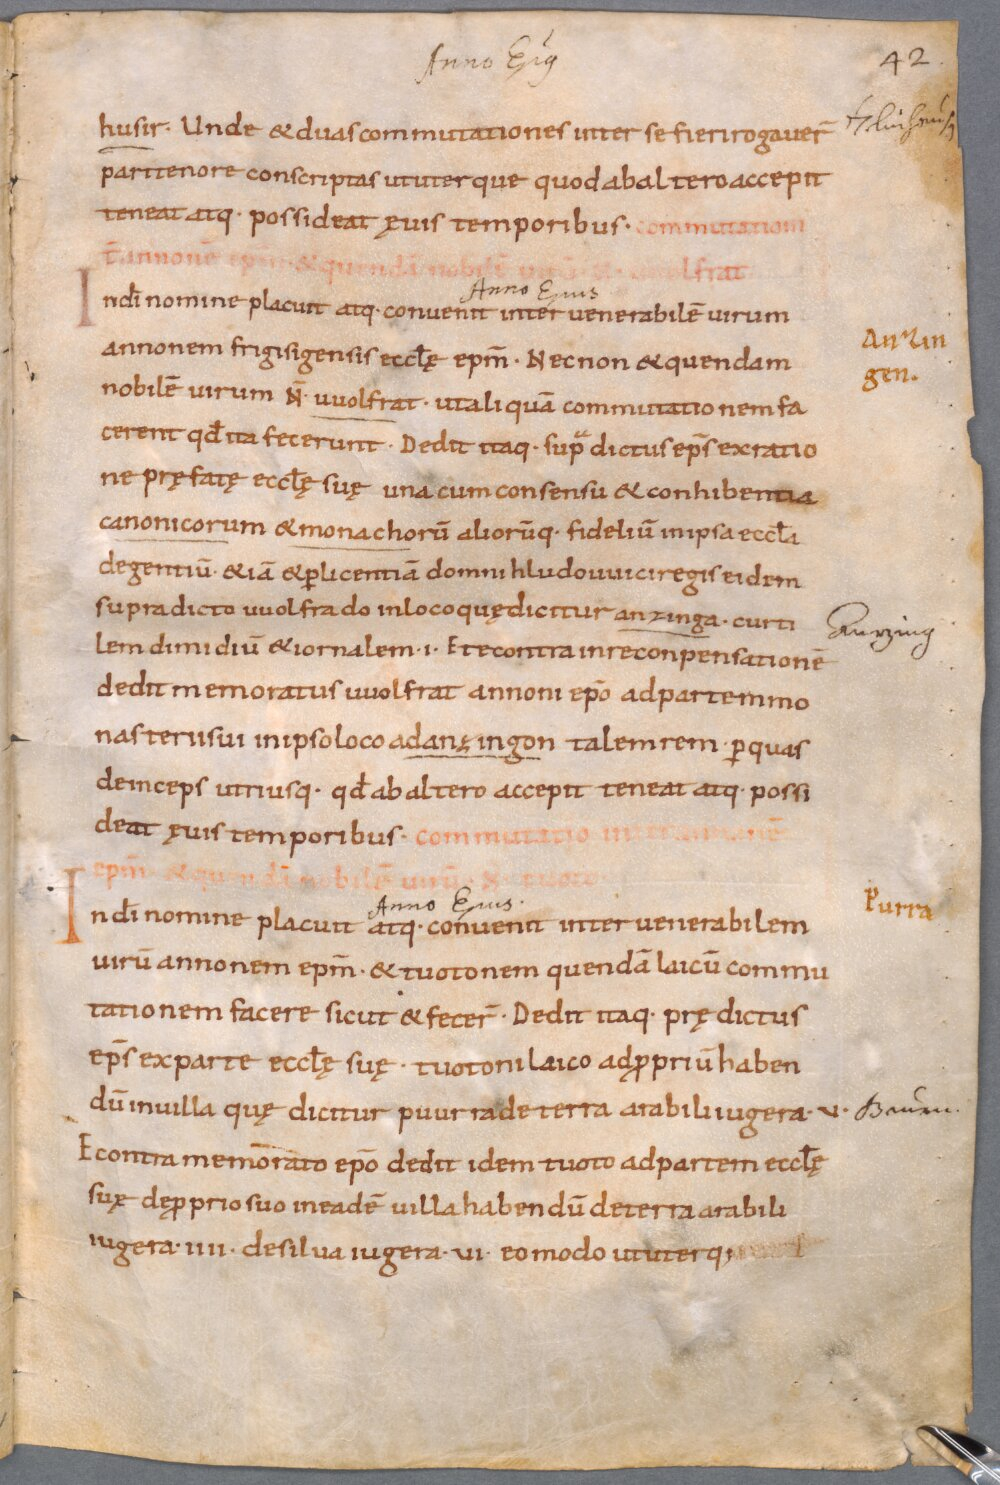 Anno Ep̄s
42
husir. Unde & duas commutationes inter se fieri rogaver̄
pari tenore conscriptas ut uterque quod ab altero accepit
teneat atq. possideat ęvis temporibus. commutatiom
int̄ annonē epm̄. & quendā nobilē virū. N̄. uuolfrat
Anno Epius
Indi̅ nomine placuit atq. convenit inter venerabilē virum
annonem frigisigensis eccl̄ę epm̄. Nec non & quendam
Anzin
gen.
nobilē virum N̄. uuolfrat. ut aliquā commutationem fa
cerent qd̄ ita fecerunt. Dedit itaq. supra dictus ep̄s ex ratio
ne pręfatę eccl̄ę suę una cum consensu & conhibentia
canonicorum & monachorū aliorūq. fideliū in ipsa eccl̄a
degentiū. & iā & p̱ licentiā domni hludouuici regis eidem
supradicto uuolfrado in loco quę dicitur anzinga. curti
Anzing
lem dimidiū & iornalem .i. Et econtra in reconpensationē
dedit memoratus uuolfrat annoni ep̄o ad partem mo
nasterii sui in ipso loco ad anzingon talem rem. p̱ quas
deinceps utriusq. qd̄ ab altero accepit teneat atq. possi
deat ęvis temporibus. commutatio inter annonē
epm̄. & quendā nobilē virū. N̄. tuoto.
Anno Epius.
Indi̅ nomine placuit atq. convenit inter venerabilem
Purra
virū annonem epm̄. & tuotonem quendā laicū commu
tationem facere sicut & fecer̄. Dedit itaq. prędictus
ep̄s ex parte eccl̄ę suę. tuotoni laico ad p̱priū haben
dū in villa quę dicitur puurra de terra arabili iugera .v.
E contra memorato ep̄o dedit idem tuoto ad partem eccl̄ę
suę de p̱prio suo in eadē villa habendū de terra arabili
iugera .iiii. de silva iugera .vi. eo modo ut uterq;